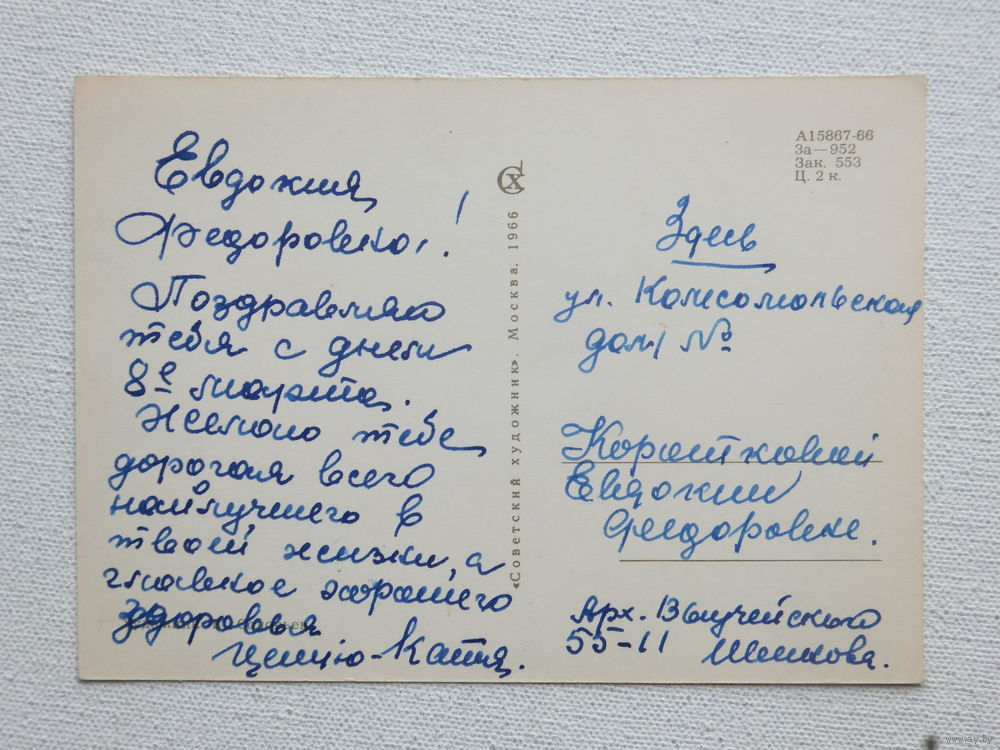 Евдокия
Федоровна!
Поздравляю
тебя с днем
8е марта.
Желаю тебе
дорогая всего
наилучшего в
твоей жизни, а
главное хорошего
здоровья
целую - Катя.
«Советский художник». Москва. 1966
А15867-66
За—952
Зак. 553
Ц. 2 к.
Здесь
ул. Комсомольская
дом №
Коротковой
Евдокии
Федоровне.
Арх. Выучейского
55-11
www.ay.by